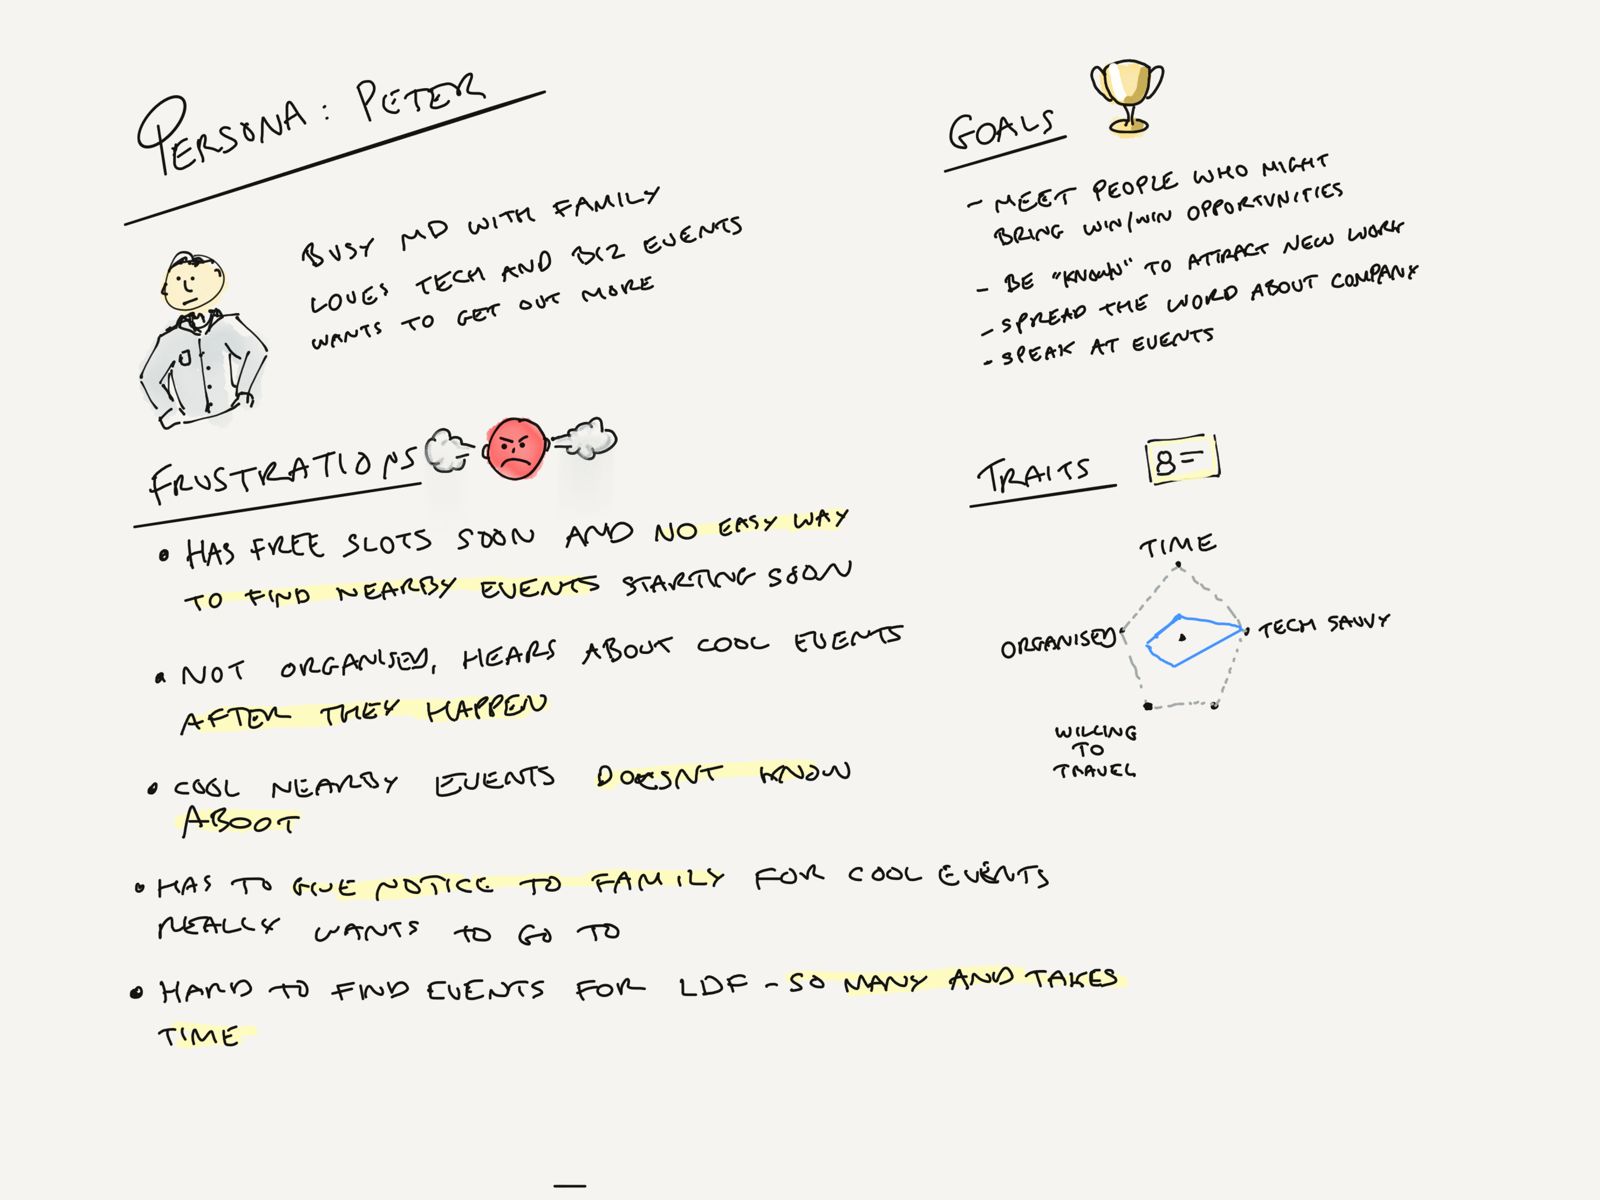 PERSONA: PETER
BUSY MD WITH FAMILY
LOVES TECH AND BIZ EVENTS
WANTS TO GET OUT MORE
GOALS
- MEET PEOPLE WHO MIGHT
BRING WIN/WIN OPPORTUNITIES
- BE "KNOWN" TO ATTRACT NEW WORK
- SPREAD THE WORD ABOUT COMPANY
- SPEAK AT EVENTS
FRUSTRATIONS
• HAS FREE SLOTS SOON AND NO EASY WAY
TO FIND NEARBY EVENTS STARTING SOON
• NOT ORGANISED, HEARS ABOUT COOL EVENTS
AFTER THEY HAPPEN
• COOL NEARBY EVENTS DOESNT KNOW
ABOUT
• HAS TO GIVE NOTICE TO FAMILY FOR COOL EVENTS
REALLY WANTS TO GO TO
• HARD TO FIND EVENTS FOR LDF - SO MANY AND TAKES
TIME
TRAITS
TIME
TECH SAVVY
ORGANISED
WILLING
TO
TRAVEL